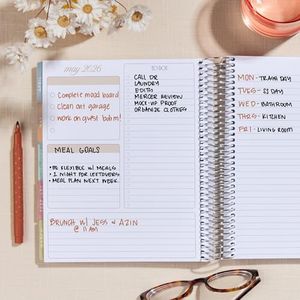 may 2026
Complete mood board
Clean art garage
work on guest bath!
MEAL GOALS
• BE FLEXIBLE w/ MEALS
• 1 NIGHT FOR LEFTOVERS
• MEAL PLAN NEXT WEEK
BRUNCH w/ JESS & AZIN
@ 11 AM
TO DO
CALL DR
LAUNDRY
EDITH
MERCER REVIEW
MOCK-UP PROOF
ORGANIZE CLOTHES
MON - TRASH DAY
TUES -
WED - BATHROOM
THURS - KITCHEN
FRI - LIVING ROOM